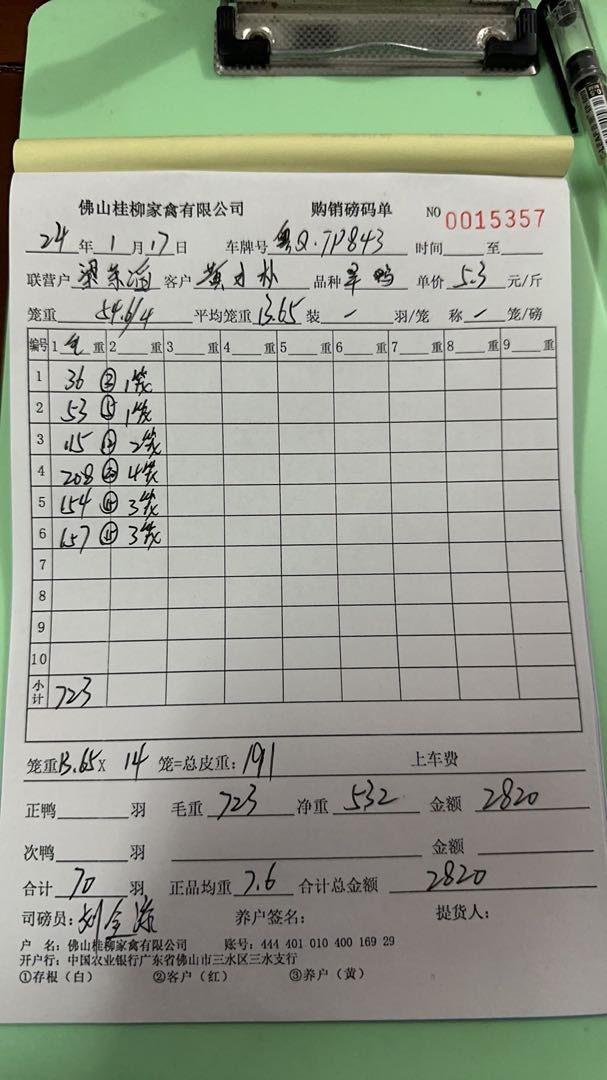 佛山桂柳家禽有限公司 购销磅码单 NO 0015357
24 年 1 月 17 日 车牌号 粤Q·TP843 时间 至
联营户 客户 黄 品种 单价 5.3 元/斤
笼重 54.6/4 平均笼重 13.65 装 一 羽/笼 称 一 笼/磅
编号 1 毛 重 2 重 3 重 4 重 5 重 6 重 7 重 8 重 9 重
1 36 ② 1笼
2 53 ⑤ 1笼
3 115 2笼
4 208 ⑳ 4笼
5 154 ⑮ 3笼
6 157 ⑮ 3笼
7
8
9
10
小计 723
笼重 13.65 X 14 笼=总皮重: 191 上车费
正鸭 羽 毛重 723 净重 532 金额 2820
次鸭 羽 金额
合计 70 羽 正品均重 7.6 合计总金额 2820
司磅员: 刘金 养户签名: 提货人:
户 名: 佛山桂柳家禽有限公司 账号: 444 401 010 400 169 29
开户行: 中国农业银行广东省佛山市三水区三水支行
①存根(白) ②客户(红) ③养户(黄)